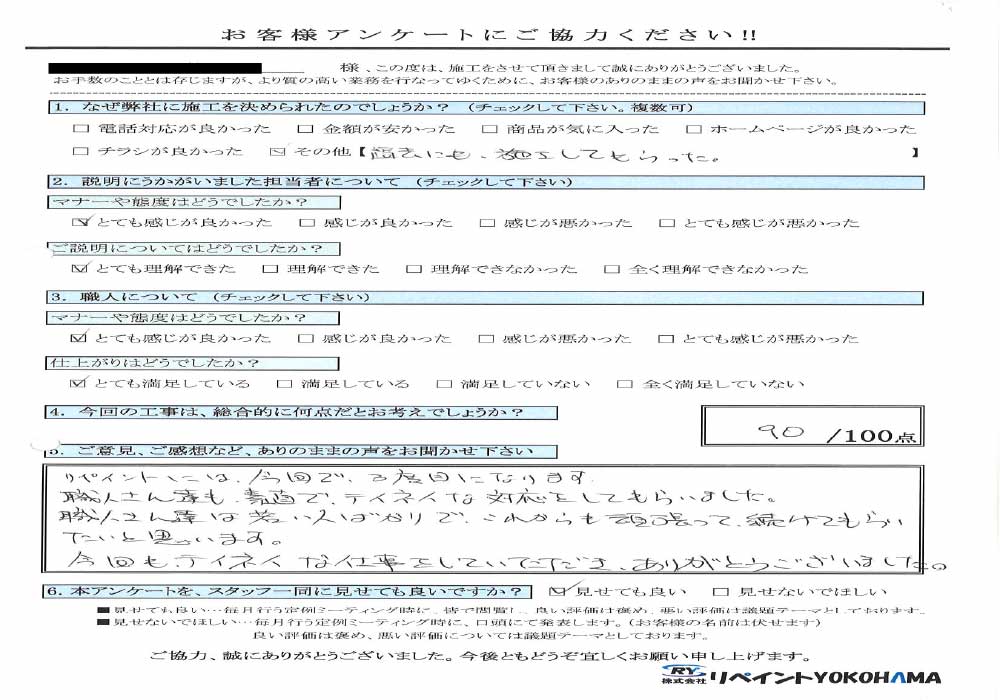 お客様アンケートにご協力ください!!
様、この度は、施工をさせて頂きまして誠にありがとうございました。
お手数のこととは存じますが、より質の高い業務を行なってゆくために、お客様のありのままの声をお聞かせ下さい。
1. なぜ弊社に施工を決められたのでしょうか? (チェックして下さい。複数可)
□ 電話対応が良かった □ 金額が安かった □ 商品が気に入った □ ホームページが良かった
□ チラシが良かった ☑ その他【 にも、施工してもらった。 】
2. 説明にうかがいました担当者について (チェックして下さい)
マナーや態度はどうでしたか?
☑ とても感じが良かった □ 感じが良かった □ 感じが悪かった □ とても感じが悪かった
ご説明についてはどうでしたか?
☑ とても理解できた □ 理解できた □ 理解できなかった □ 全く理解できなかった
3. 職人について (チェックして下さい)
マナーや態度はどうでしたか?
☑ とても感じが良かった □ 感じが良かった □ 感じが悪かった □ とても感じが悪かった
仕上がりはどうでしたか?
☑ とても満足している □ 満足している □ 満足していない □ 全く満足していない
4. 今回の工事は、総合的に何点だとお考えでしょうか?
90 /100点
5. ご意見、ご感想など、ありのままの声をお聞かせ下さい
リペイントには、今回で、3度目になります
職人さん達も、素直で、テイネイな対応をしてもらいました。
職人さん達は若い人ばかりで、これからも頑張って、続けてもらい
たいと思います。
今回もテイネイな仕事をしていただき、ありがとうございました。
6. 本アンケートを、スタッフ一同に見せても良いですか?
☑ 見せても良い □ 見せないでほしい
■見せても良い…毎月行う定例ミーティング時に、皆で閲覧し、良い評価は褒め、悪い評価は議題テーマとしております。
■見せないでほしい…毎月行う定例ミーティング時に、口頭にて発表します。(お客様の名前は伏せます)
良い評価は褒め、悪い評価については議題テーマとしております。
ご協力、誠にありがとうございました。今後ともどうぞ宜しくお願い申し上げます。
RY
株式会社リペイントYOKOHAMA